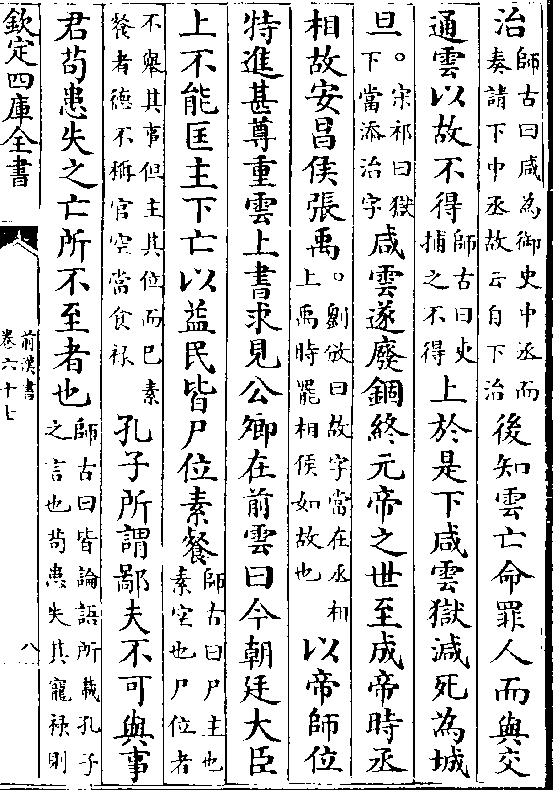 治師古曰咸為御史中丞而奏請下中丞故云自下治後知雲亡命罪人而與交
通雲以故不得師古曰吏捕之不得上於是下咸雲獄減死為城
旦。宋祁曰獄下當添治字咸雲遂廢錮終元帝之世至成帝時丞
相故安昌侯張禹。劉攽曰故字當在丞相上禹時罷相侯如故也以帝師位
特進甚尊重雲上書求見公卿在前雲曰今朝廷大臣
上不能匡主下亡以益民皆尸位素餐師古曰尸主也素空也尸位者
不舉其事但主其位而已素餐者德不稱官空當食禄孔子所謂鄙夫不可與事
君苟患失之亡所不至者也師古曰皆論語所載孔子之言也苟患失其寵禄則
欽定四庫全書
前漢書
卷六十七
八